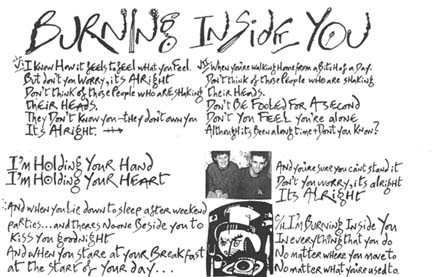 BURNING INSIDE YOU
I KNOW HOW it feels to feel what you Feel.
But don't you WORRY, it's AlRight
DON'T think of those People who are SHAKING
their HEADS.
They DON'T KNOW you - they don't own you
It's AlRight.
WHEN you're WALKING HOME from a Bitch of a Day.
DON'T think of those People who are sHaking
their Heads.
DON'T BE FOOLED FOR A SECOND
DON'T YOU FEEL you're alone
Although it's Been a long time + Don't you KNOW?
I'm HOLDING YOUR HAND
I'M HOLDING YOUR HEART
And you're sure you can't stand it
Don't you worry, it's alright
It's AlRight
AND WHEN you lie down to sleep after weekend
parties... and there's No one Beside you to
Kiss you goodnight
AND WHEN you stare at your BREAKFAST
at the START of your DAY...
I'M BURNING Inside You
IN everything that you do
No matter where you move to
No matter what you're used to.